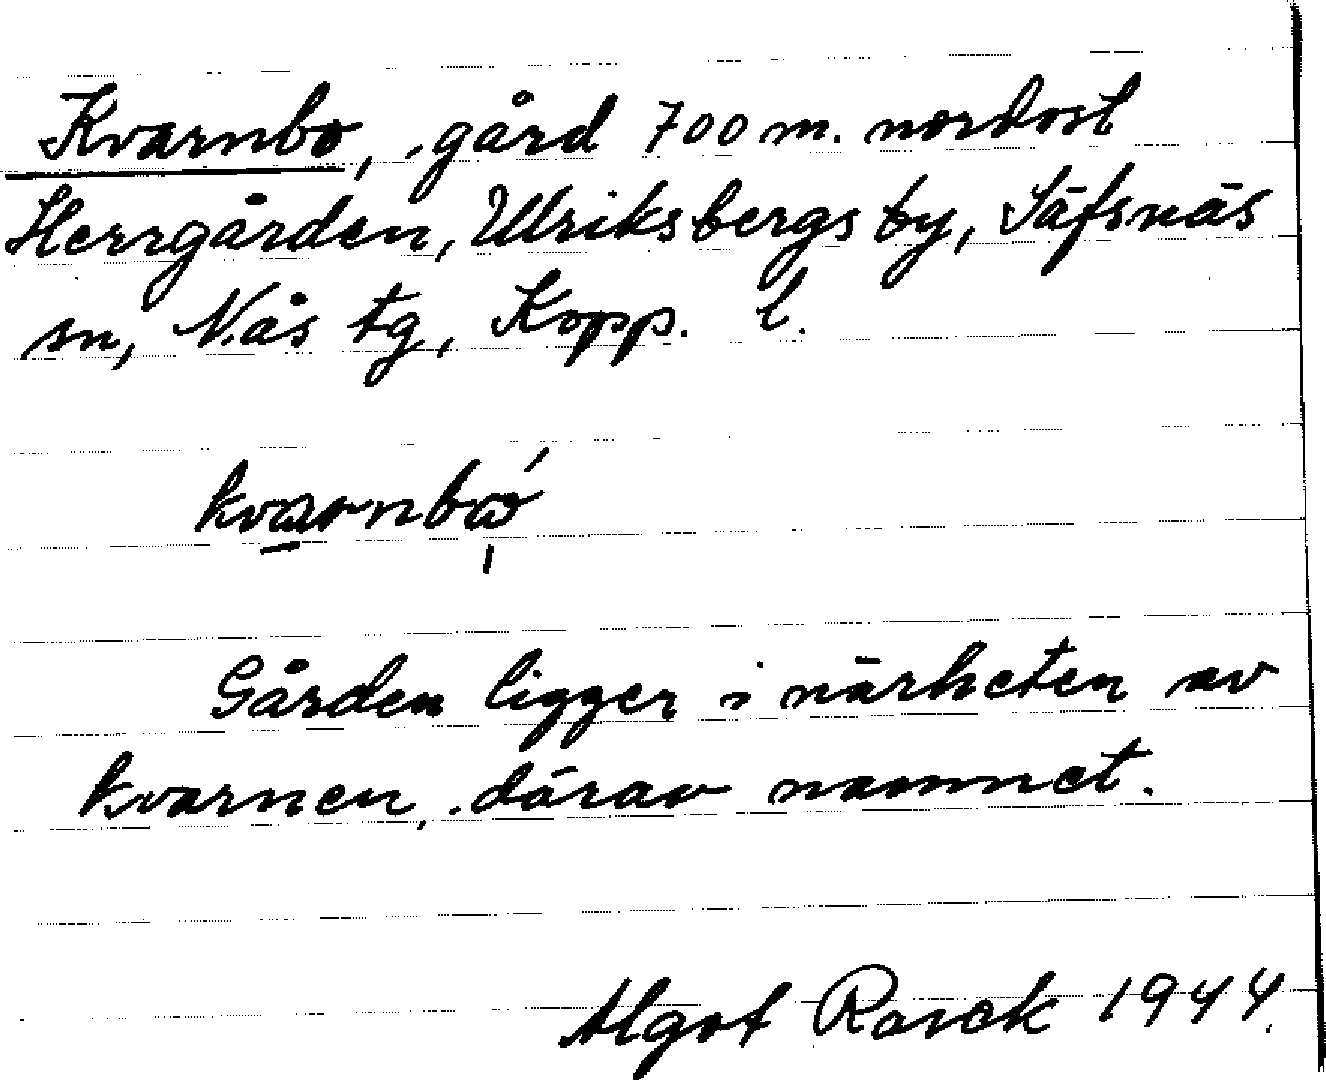 Kvarnbo, gård 700 m. nordost
Herrgården, Ulriksbergs by, Säfsnäs
sn, Nås tg, Kopp. l.
kvarnbω´
Gården ligger i närheten av
kvarnen, därav namnet.
Algot Rosck 1944.